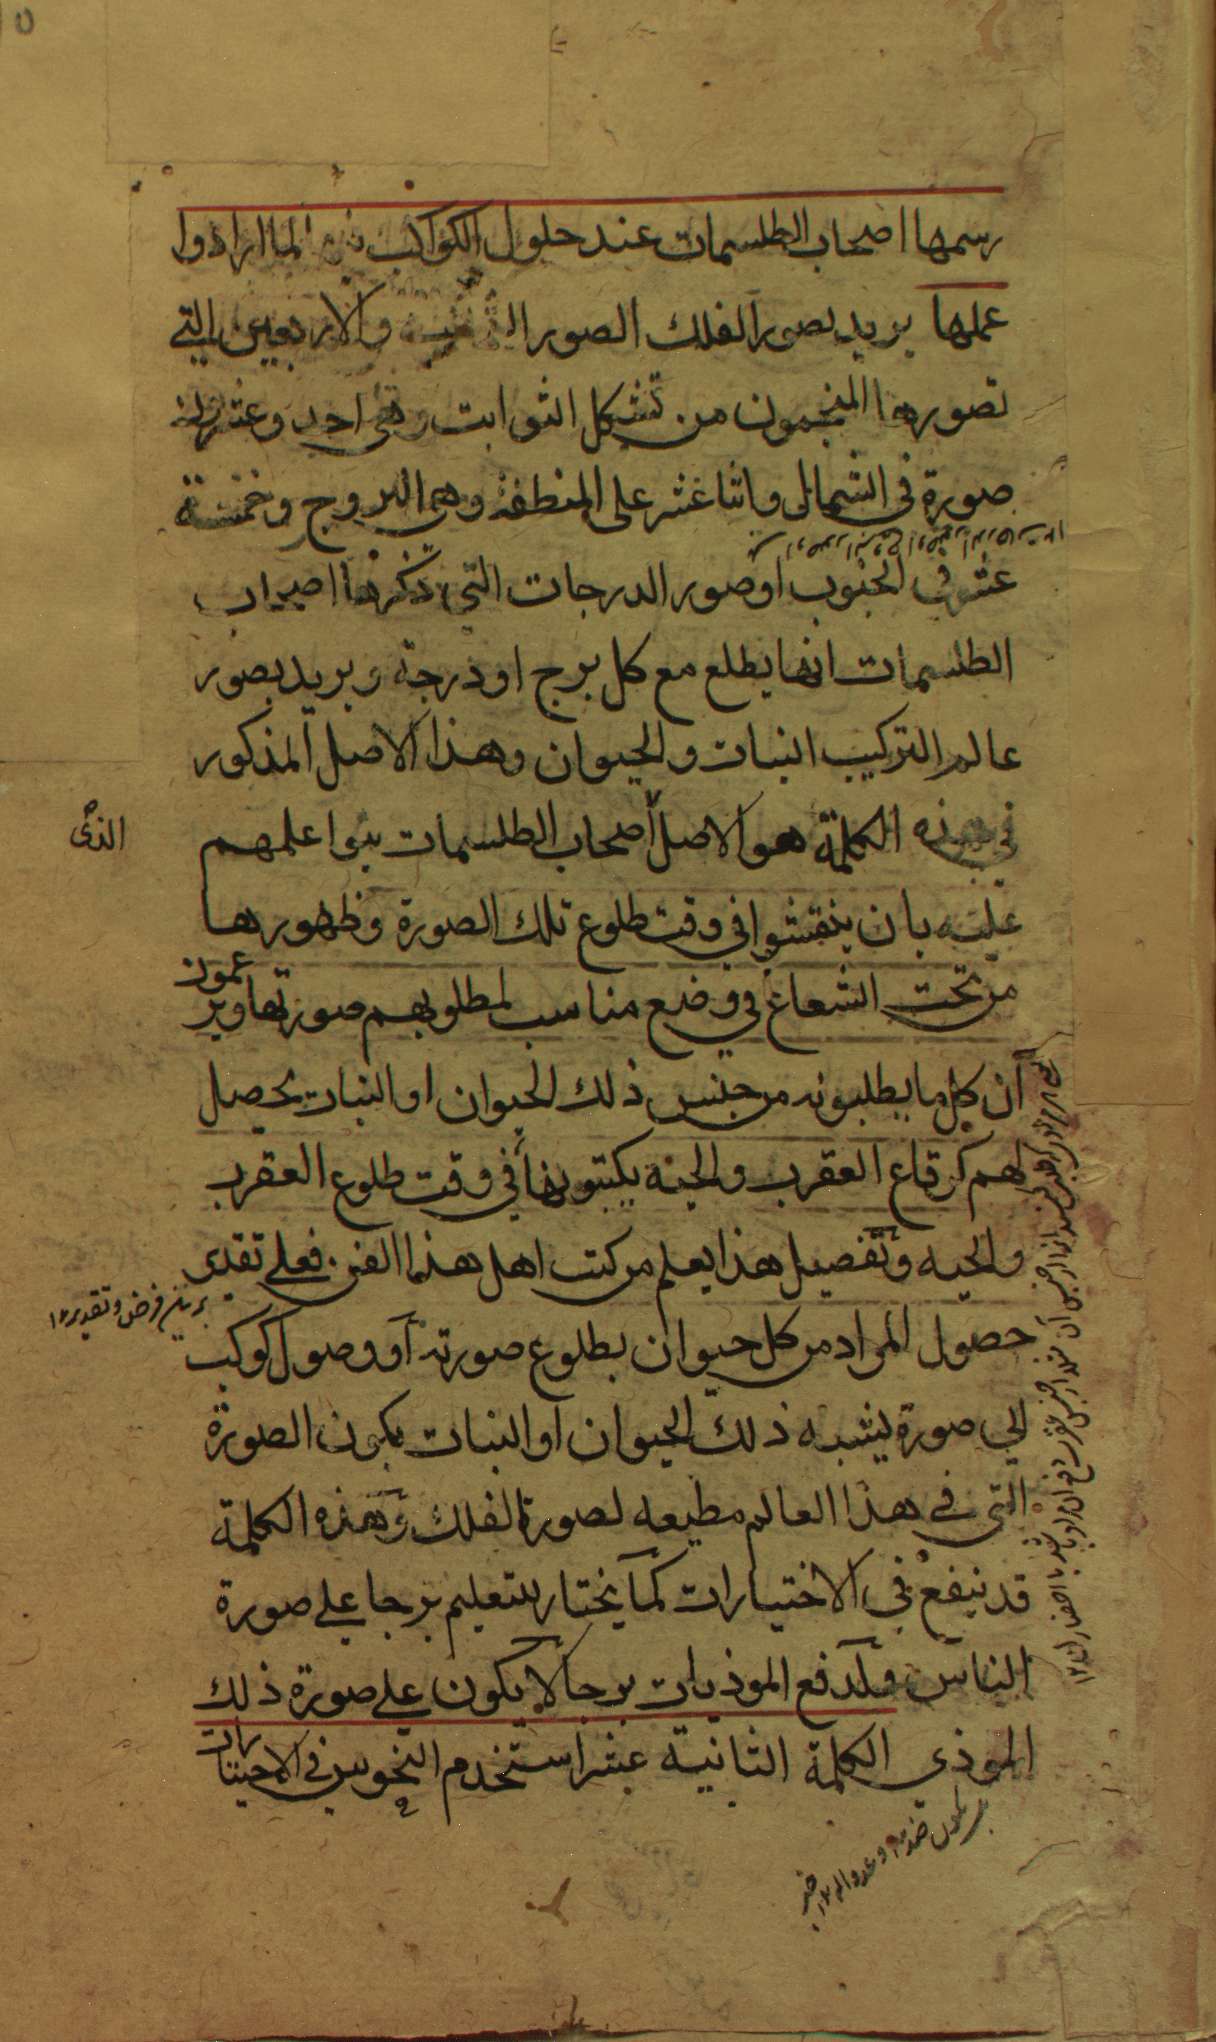 رسمها اصحاب الطلسمات عند حلول الكواكب لما ارادوا
عملها يريد بصور الفلك الصور الثمانية والاربعين التي
تصورها المنجمون من تشكل الثوابت وهي احد وعشرون
صورة في الشمال واثنا عشر على المنطقة وهي البروج وخمسة
عشر في الجنوب او صور الدرجات التي ذكرها اصحاب
الطلسمات انها يطلع مع كل برج او درجة ويريد بصور
عالم التركيب النبات والحيوان وهذا الاصل المذكور
في هذه الكلمة هو الاصل اصحاب الطلسمات بنوا علمهم
الذي
عليه بان ينقشوا في وقت طلوع تلك الصورة وظهورها
من تحت الشعاع في وضع مناسب لمطلوبهم صورتها ويزعمون
ان كل ما يطلبونه من جنس ذلك الحيوان او النبات يحصل
لهم كرقاع العقرب والحية يكتبونها في وقت طلوع العقرب
والحيه وتفصيل هذا يعلم من كتب اهل هذا الفن فعلي تقدير
برين فرض وتقدير ١٢
حصول المراد من كل حيوان بطلوع صورته او وصول كوكب
الي صورة يشبه ذلك الحيوان او النبات يكون الصورة
التي في هذا العالم مطيعه لصورة الفلك وهذه الكلمة
قد ينفع في الاختيارات كما يختار للتعليم برجا علي صورة
الناس ولدفع الموذيات برجا لا يكون علي صورة ذلك
الموذي الكلمة الثانية عشر استخدم النحوس في الاختيارات